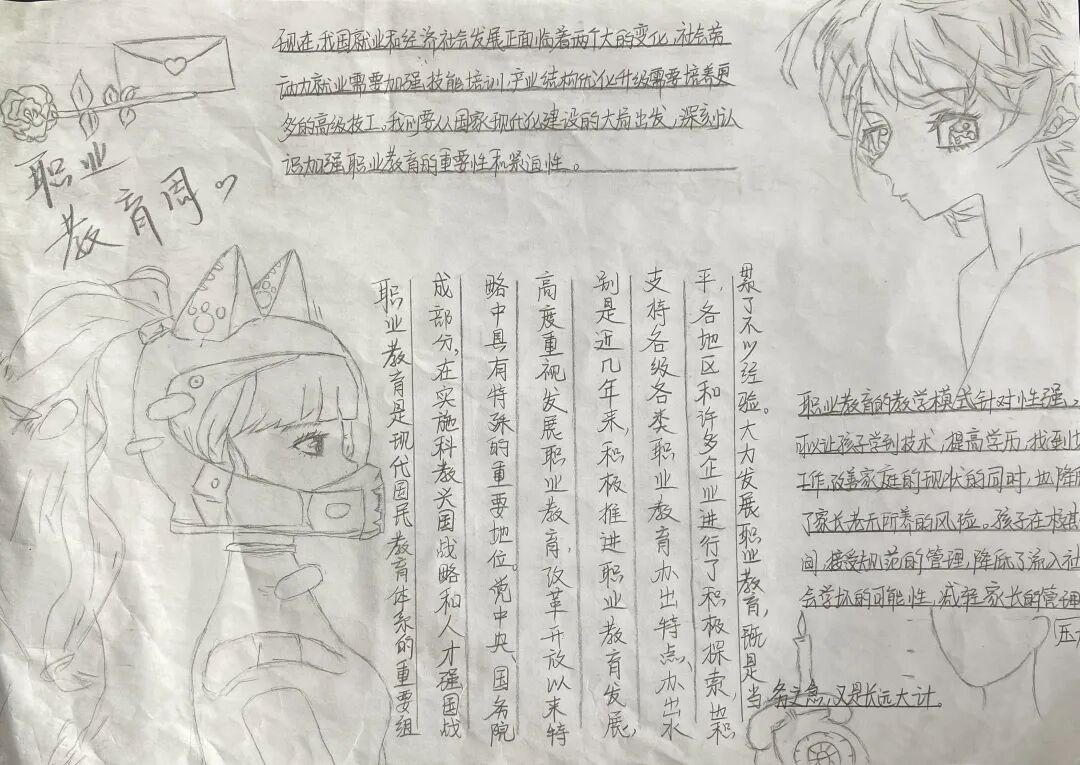 职业
教育周
现在，我国就业和经济社会发展正面临着两个大的变化，社会劳
动力就业需要加强技能培训，产业结构优化升级需要培养更
多的高级技工。我们要从国家现代化建设的大局出发，深刻认
识加强职业教育的重要性和紧迫性。
职业教育是现代国民教育体系的重要组
成部分，在实施科教兴国战略和人才强国战
略中具有特殊的重要地位。党中央、国务院
高度重视发展职业教育，改革开放以来特
别是近几年来，积极推进职业教育发展，
支持各级各类职业教育办出特点、办出水
平，各地区和许多企业进行了积极探索，也积
累了不少经验。大力发展职业教育，既是当
务之急，又是长远大计。
职业教育的教学模式针对性强，
可以让孩子学到技术，提高学历，找到
工作，改善家庭的现状的同时，也降
了家长老无所养的风险。孩子在校
间，接受规范的管理，降低了流入社
会学坏的可能性，减轻家长的管理